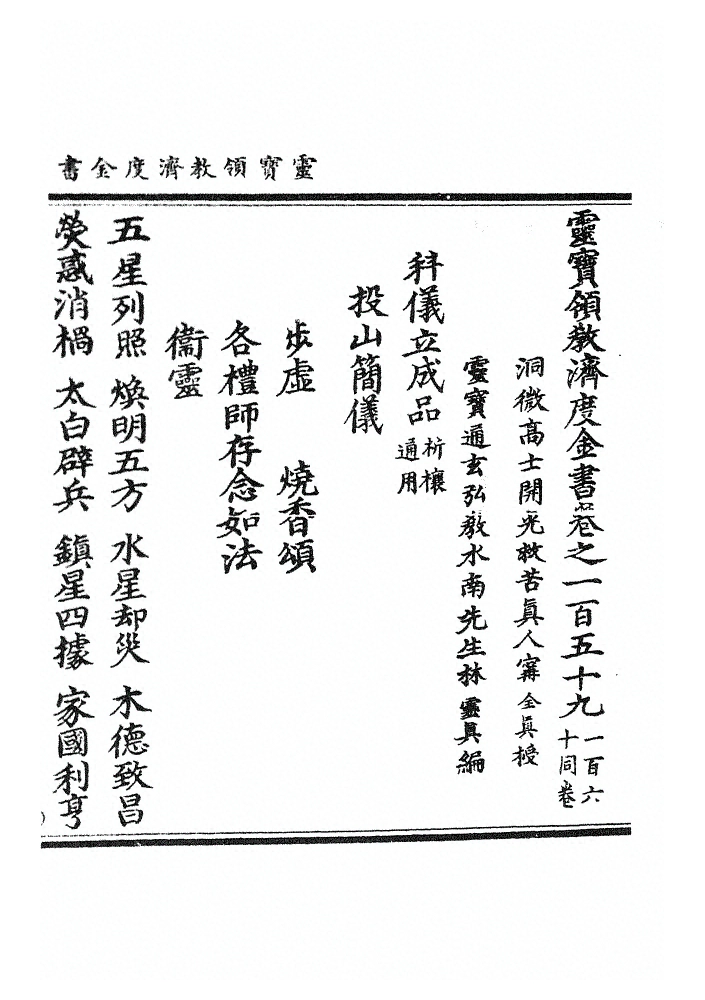 靈寶領教濟度金書
靈寶領教濟度金書卷之一百五十九一百六十同卷
洞微高士開光救苦真人甯全真授
靈寶通玄弘教水南先生林靈真編
科儀立成品祈禳通用
投山簡儀
步虛 燒香頌
各禮師存念如法
衞靈
五星列照 煥明五方 水星却災 木德致昌
熒惑消禍 太白辟兵 鎮星四據 家國利亨